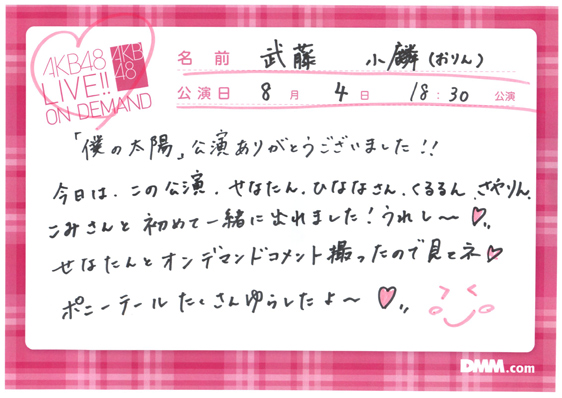 AKB48
LIVE!!
ON DEMAND
AKB
48
名前 武藤 小麟(おりん)
公演日 8月 4日 18:30 公演
「僕の太陽」公演ありがとうございました!!
今日は、この公演、せなたん、ひななさん、くるるん、さやりん、
こみさんと初めて一緒に出れました!うれし〜♡
せなたんとオンデマンドコメント撮ったので見てネ♡
ポニーテールたくさんゆらしたよ〜♡
DMM.com